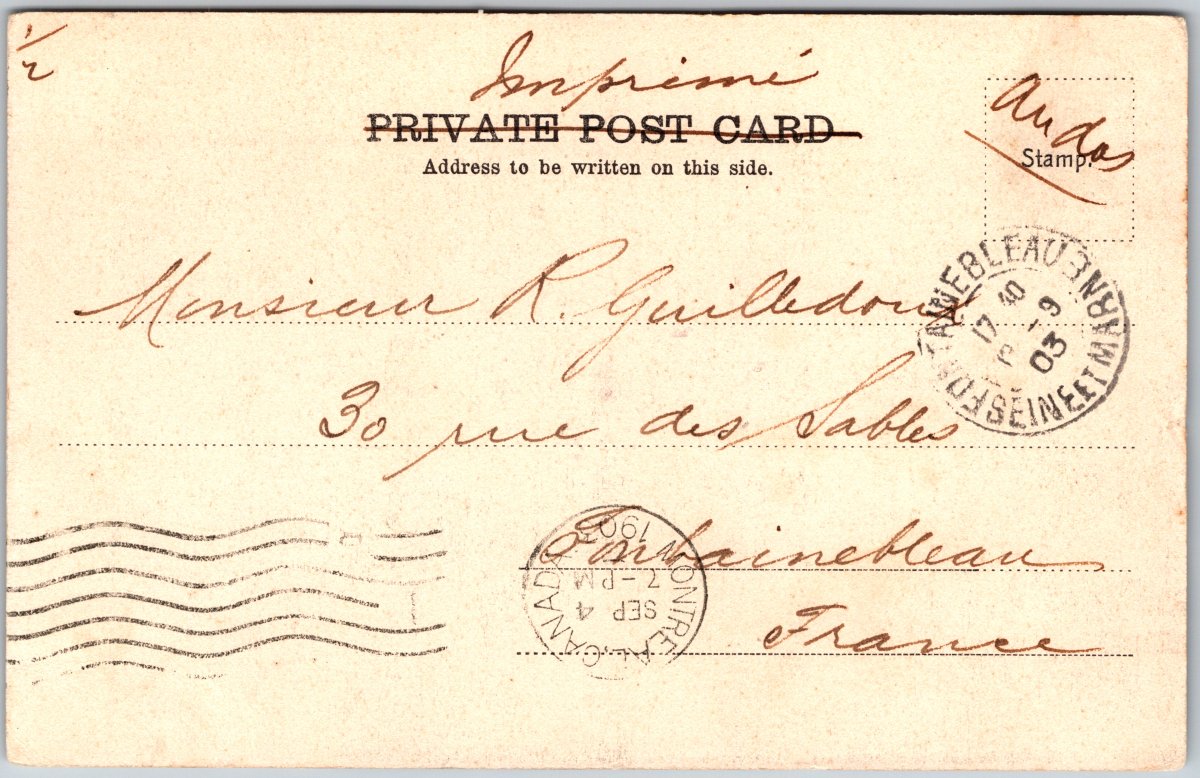 1/2
Imprimé
PRIVATE POST CARD
Address to be written on this side.
Au dos
Stamp.
Monsieur R. Guilledoux
30 rue des Sables
Fontainebleau
France
FONTAINEBLEAU
SEINE ET MARNE
17 40
9
03
MONTREAL, CANADA
SEP 4
7-PM
1903